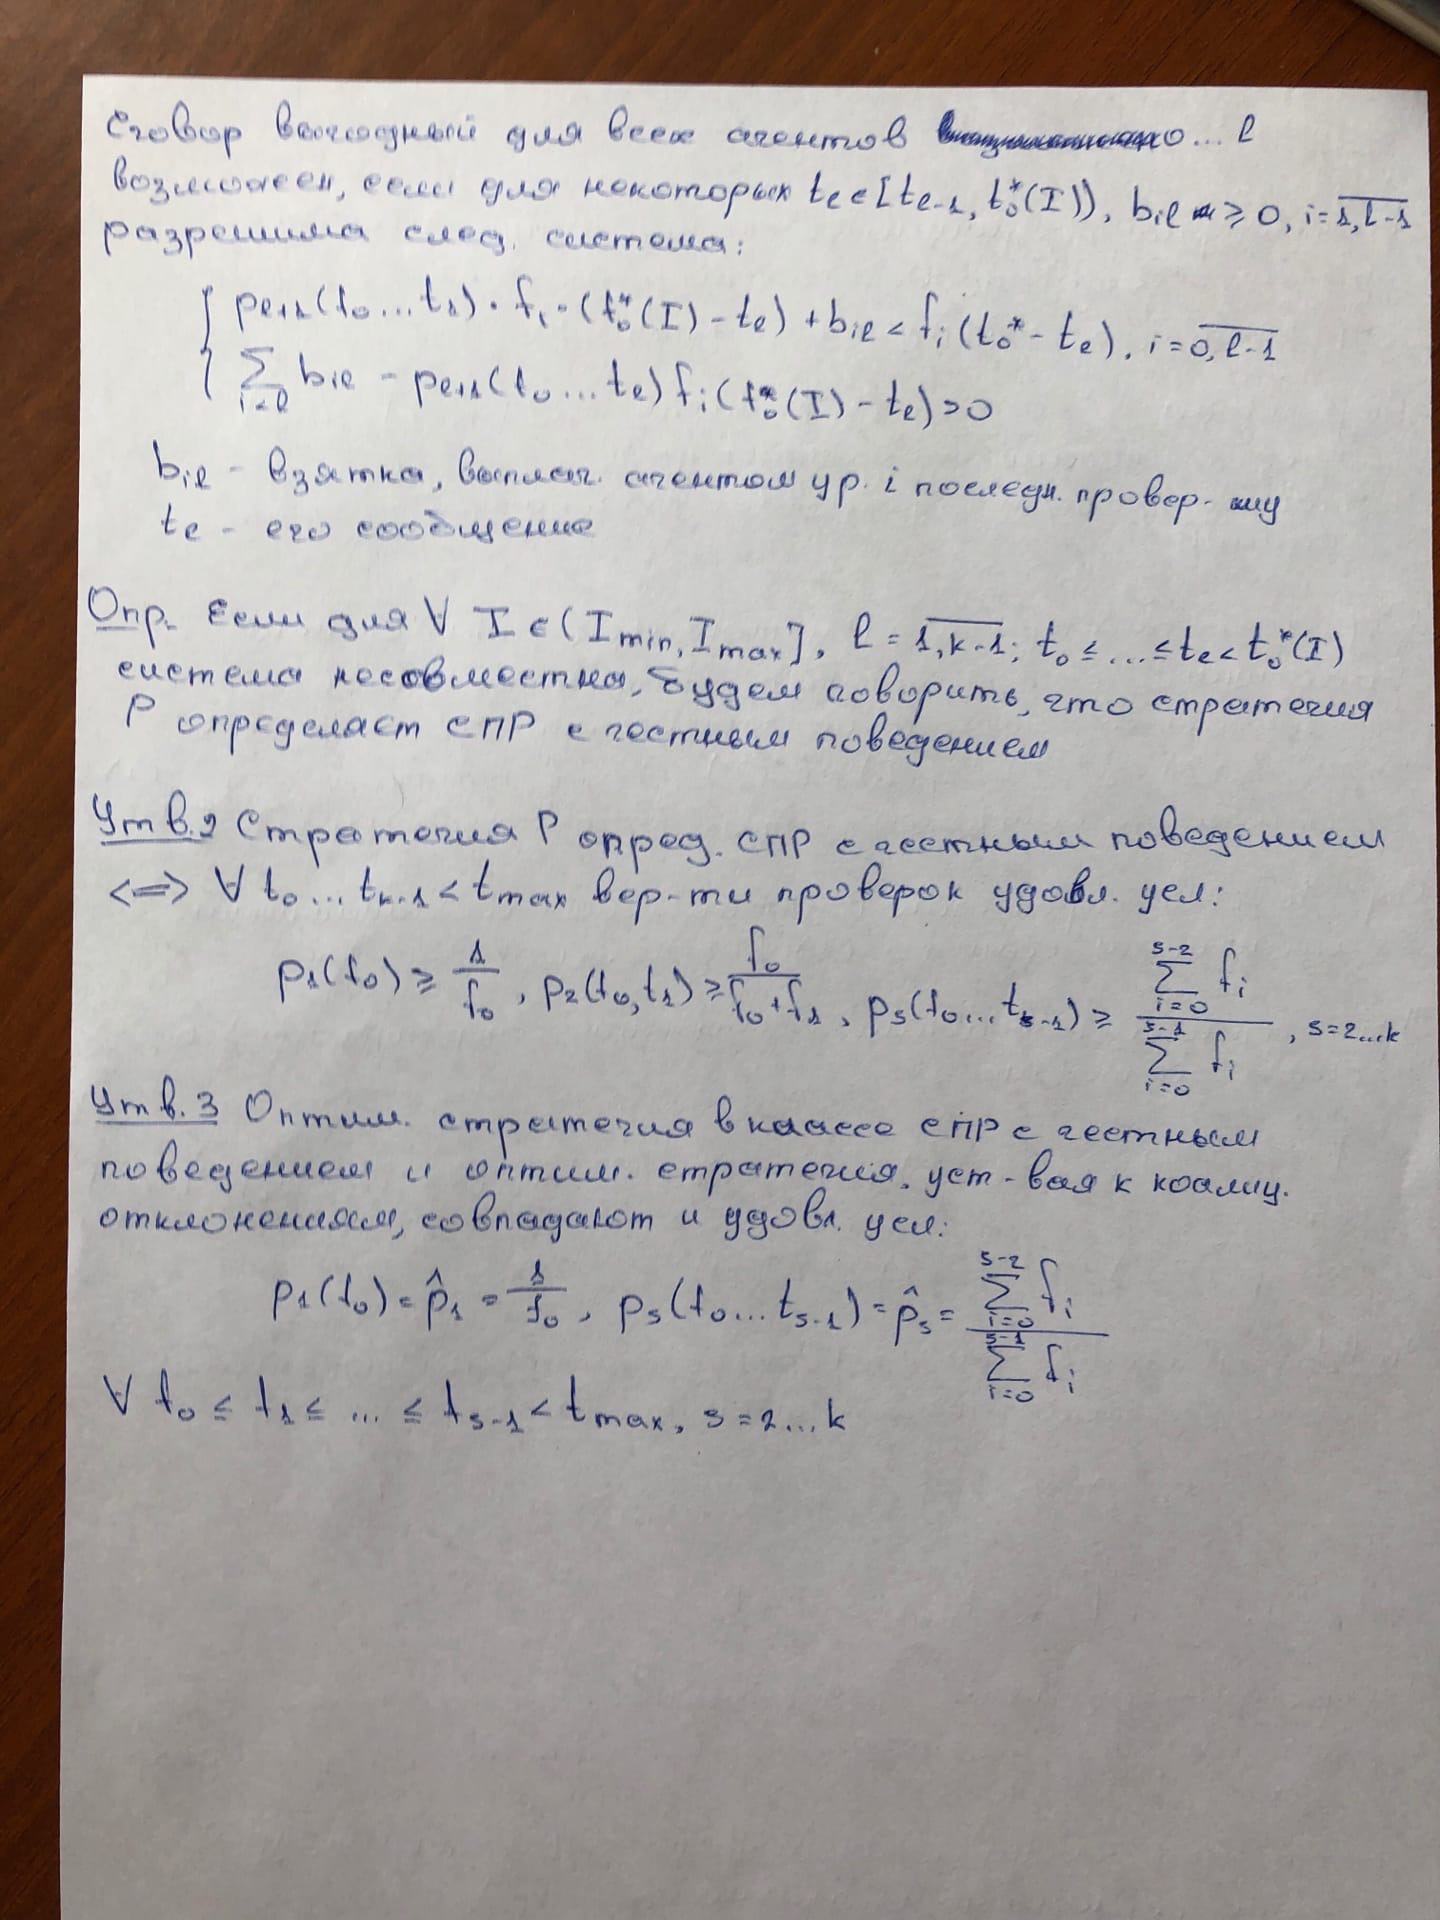 Сговор выгодный для всех агентов 0...l
возможен, если для некоторых tₗ ∈ [tₗ₋₁, t₀*(I)), bᵢₗ ⩾ 0, i = 1, l-1
разрешима след. система:
pₗ₊₁(t₀...t₁) · fᵢ · (t₀*(I) - tₗ) + bᵢₗ < fᵢ(t₀* - tₗ), i = 0, l-1
∑ i<l bᵢₗ - pₗ₊₁(t₀...tₗ) fᵢ (t₀*(I) - tₗ) > 0
bᵢₗ - взятка, выплач. агентом ур. i последн. провер-му
tₗ - его сообщение
Опр. Если для ∀ I ∈ (Imin, Imax], l = 1, k-1; t₀ ≤ ... ≤ tₗ < t₀*(I)
система несовместна, будем говорить, что стратегия
P определяет СПР с честным поведением
Утв. 2 Стратегия P опред. СПР с честным поведением
<=> ∀ t₀...tₖ₋₁ < tmax вер-ти проверок удовл. усл:
p₁(t₀) ⩾ 1/f₀, p₂(t₀, t₁) ⩾ f₀/(f₀ + f₁), pₛ(t₀...tₛ₋₁) ⩾ ∑ i=0 s-2 fᵢ / ∑ i=0 s-1 fᵢ, s = 2...k
Утв. 3 Оптим. стратегия в классе СПР с честным
поведением и оптим. стратегия, уст-вая к коалиц.
отклонениям, совпадают и удовл. усл:
p₁(t₀) = p̂₁ = 1/f₀, pₛ(t₀...tₛ₋₁) = p̂ₛ = ∑ i=0 s-2 fᵢ / ∑ i=0 s-1 fᵢ
∀ t₀ ≤ t₁ ≤ ... ≤ tₛ₋₁ < tmax, s = 2...k